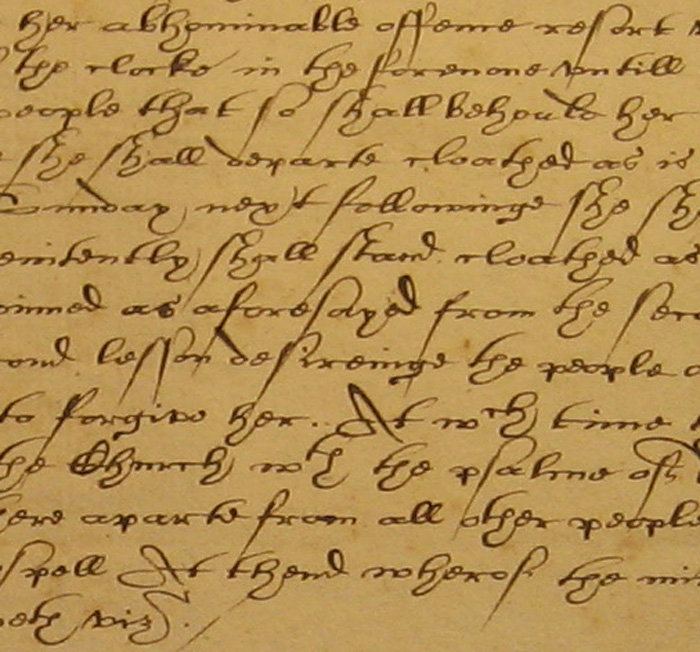 her abhominable offence resort
the clocke in the forenone vntill
people that so shall behould her
she shall departe cloathed as is
Sunday next followinge she sh
enitently shall stand cloathed as
oined as aforesayed from the seco
cond lesson desireinge the people
to forgive her. At wch time
the Church wth the psalme of
here aparte from all other people
spell At thend wherof the mi
eth viz.